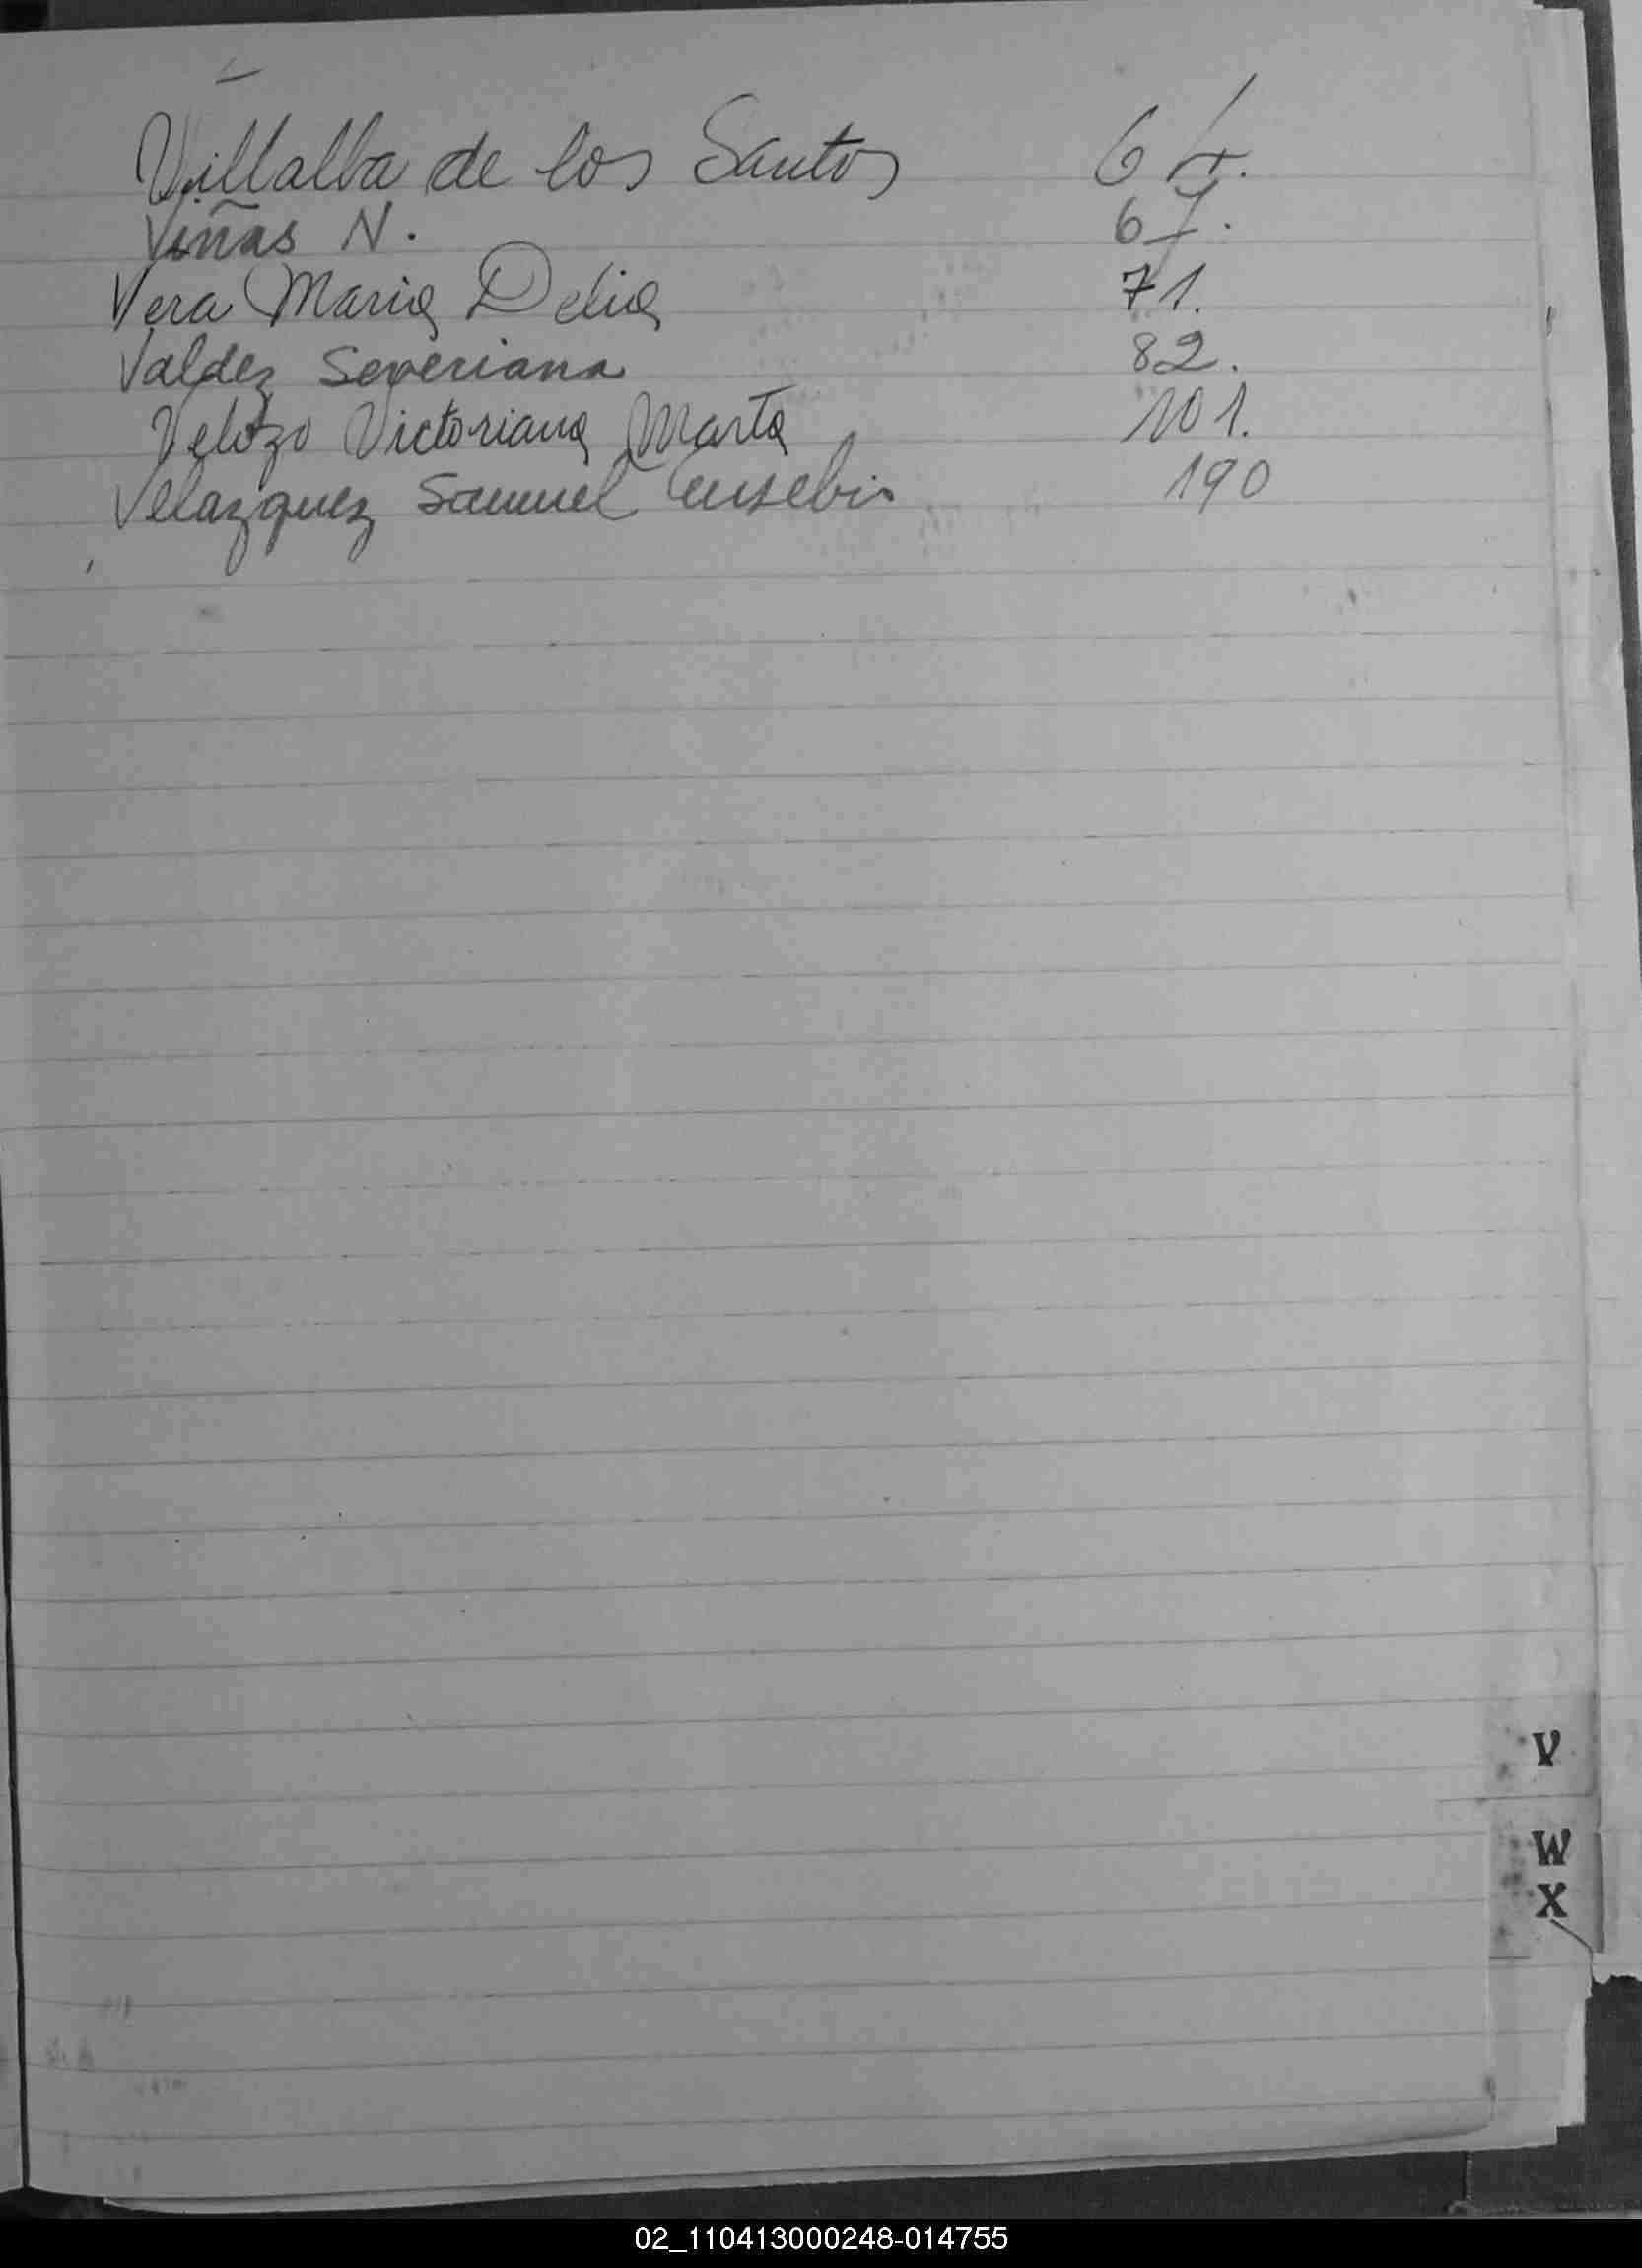 Villalba de los Santos 64.
Viñas N. 67.
Vera Maria Delia 71.
Valdez Severiana 82.
Velozo Victoriana Marta 101.
Velazquez Samuel Eusebio 190
V
W
X
02_110413000248-014755